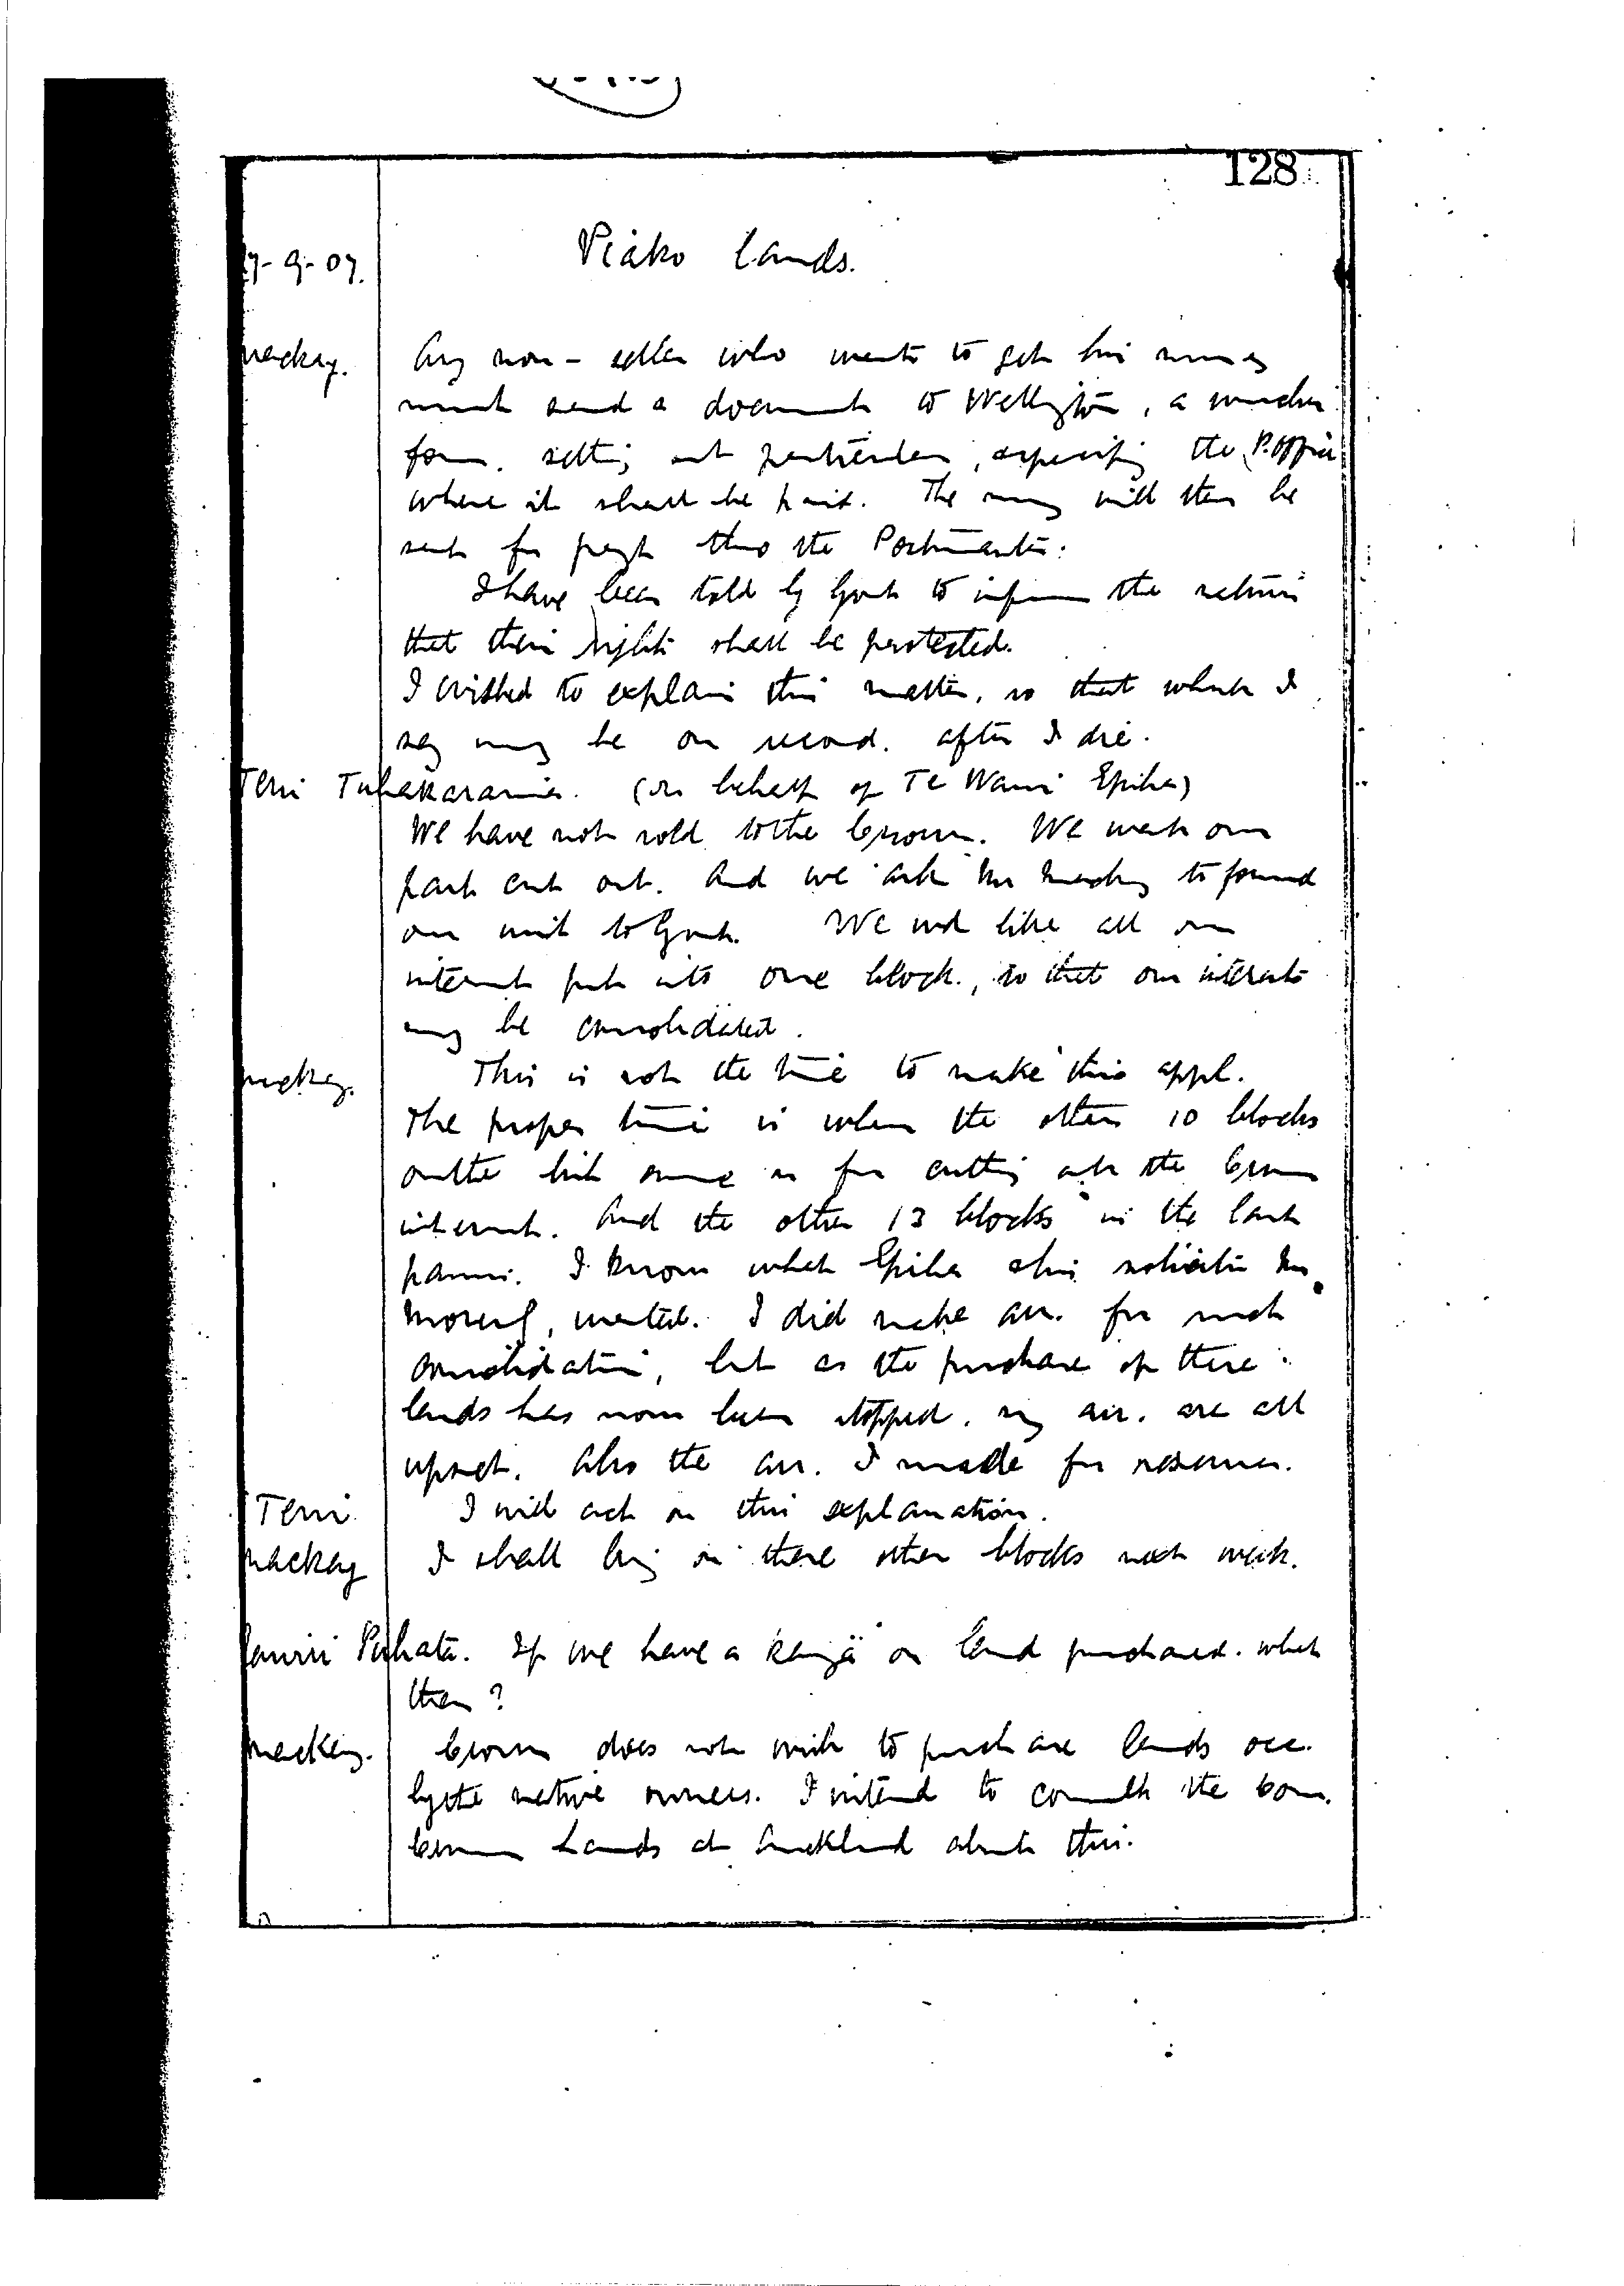 128
7-9-07.
Piako Lands.
Mackay. Any non-seller who wants to get his money
must send a document to Wellington, a voucher
form, setting out particulars, specifying the P. Office
where it shall be paid. The money will then be
sent for paymt thro the Postmaster.
I have been told by Govt to inform the natives
that their rights shall be protected.
I wished to explain this matter, so that what I
say may be on record. after I die.
(on behalf of Te Wani Epiha)
We have not sold to the Crown. We want our
part cut out. And we ask Mr Mackay to forward
our wish to Govt. We wd like all our
interests put into one block, so that our interests
may be consolidated.
Mackay. This is not the time to make this appl.
The proper time is when the other 10 blocks
on the list come on for cutting out the Crown
interest. And the other 13 blocks in the last
panui. I know what Epiha & his solicitor Mr
wanted. I did make arr. for such
consolidation, but as the purchase of these
lands has now been stopped, my arr. are all
upset. Also the arr. I made for reserves.
I will act on this explanation.
Mackay I shall bring on these other blocks next week.
If we have a kainga on land purchased. what
then?
Mackay. Crown does not wish to purchase lands occ.
by the native owners. I intend to consult the Com.
Crown Lands at Auckland about this.